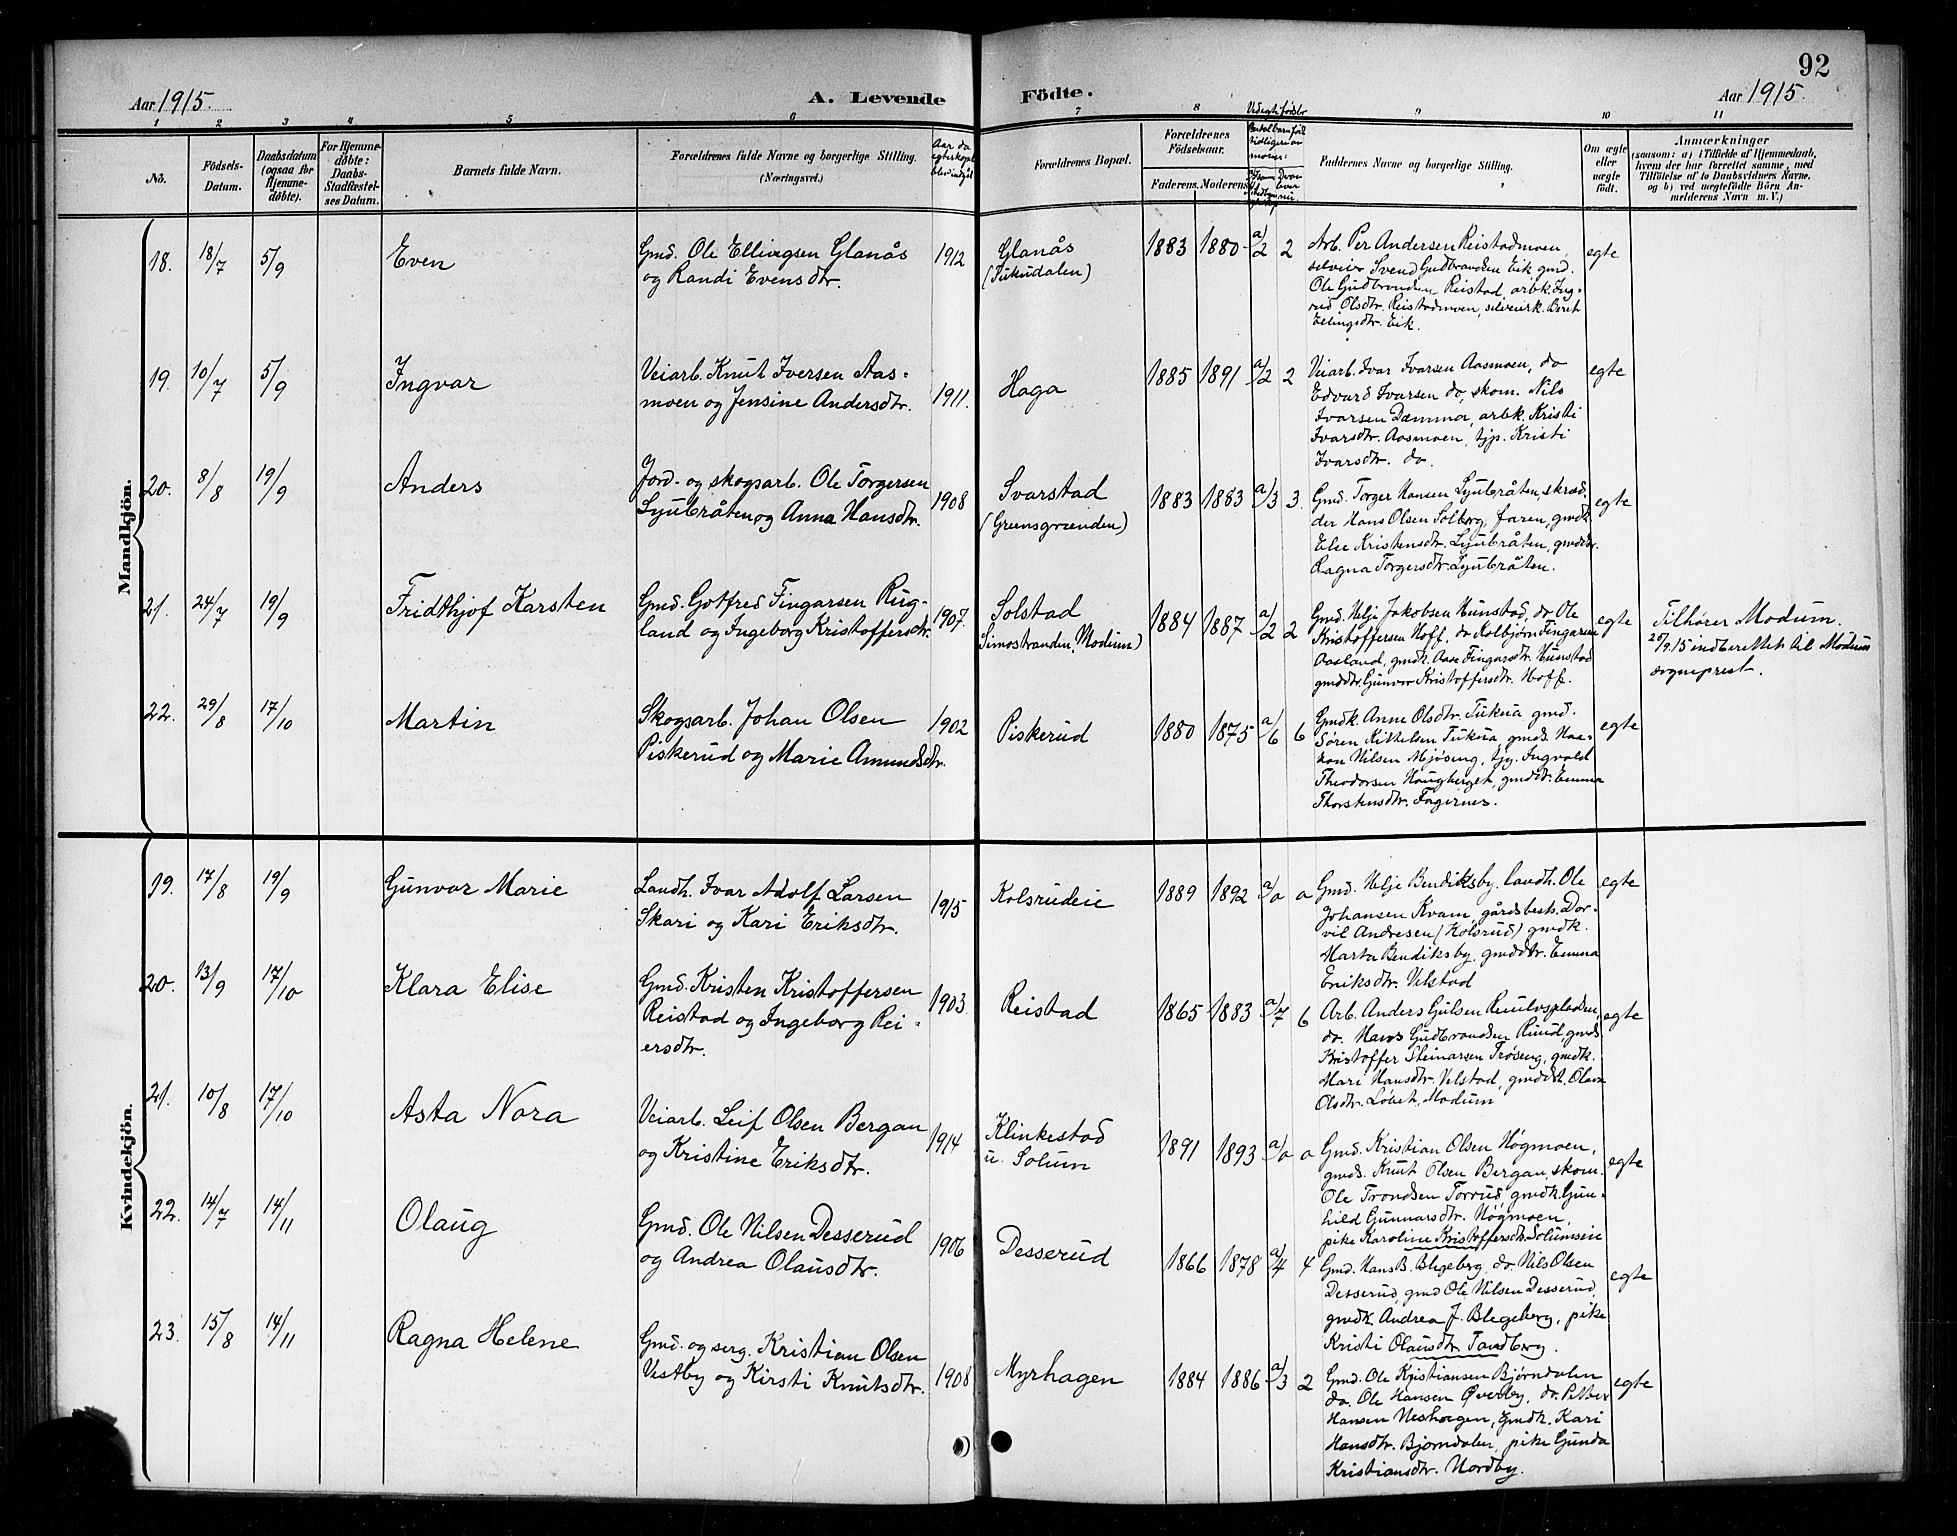 92
Aar 1915.
A. Levende Födte.
Aar 1915.
1 2 3 4 5 6 7 8 9 10 11
No.
Födsels-Datum.
Daabsdatum (ogsaa for Hjemme-döbte).
For Hjemme-döbte: Daabs-Stadfæstel-ses Datum.
Barnets fulde Navn.
Forældrenes fulde Navne og borgerlige Stilling.
(Næringsvei.)
Aar da
Forældrenes Bopæl.
Forældrenes Födselsaar.
Faderens. Moderens.
Faddernes Navne og borgerlige Stilling.
Om ægte eller uægte födt.
Anmærkninger
(saasom: a) i Tilfælde af Hjemmedaab,
hvem der har forrettet samme, med
Tilföielse af to Daabsvidners Navne,
og b) ved uegtefödte Börn An-
melderens Navn m. V.)
Mandkjön.
18. 18/7 5/9 Even
Gmd. Ole Ellingsen Glanås
og Randi Evensdtr.
1912
Glanås
1883 1880 a/2 2
Arb. Per Andersen Reistadmoen,
selveier Svend Gudbrandsen Eik gmd.
Ole Gudbrandsen Reistad, arbk. Ing-
rid Olsdtr. Reistadmoen, selveierk. Berit
Ellingsdtr. Eik.
egte
19. 10/7 5/9 Ingvar
Veiarb. Knut Iversen Aas-
moen og Jensine Andersdtr.
1911.
Haga
1885 1891 a/2 2
Veiarb. Ivar Ivarsen Aasmoen, do
Edvard Ivarsen do, skom. Nils
Ivarsen Dæmma, arbk. Kristi
Ivarsdtr. Aasmoen, tjp. Kristi
Ivarsdtr. do.
egte
20. 8/8 19/9 Anders
Jord- og skogsarb. Ole Torgersen
Ljubråten og Anna Hansdtr.
1908
Svarstad
(Greensgrænden)
1883 1883 a/3 3.
Gmd. Torger Hansen Ljubråten, skræd-
der Hans Olsen Solberg, faren, gmdk.
Else Kristensdtr. Ljubråten, gmddtr.
Ragna Torgersdtr. Ljubråten.
egte
21. 24/7 19/9 Fridthjof Karsten
Gmd. Gotfred Fingarsen Rug-
land og Ingeborg Kristoffersdtr.
1907.
Solstad
(Simostranden, Modum)
1884 1887 a/2 2
Gmd. Helje Jakobsen Hunstad, do Ole
Kristoffersen Hoff, do Kolbjørn Fingarsen
Aasland, gmdk. Aase Fingarsdtr. Hunstad
gmddtr. Gunvor Kristoffersdtr. Hoff.
egte
Tilhører Modum.
20/9.15 indberettet til Modum
sogneprest.
22. 29/8 17/10 Martin
Skogsarb. Johan Olsen
Piskerud og Marie Amundsdtr.
1902
Piskerud
1880 1875 a/6 6
Gmdk Anne Olsdtr. Tukua gmd.
Søren Kittelsen Tukua, gmds. Haa-
kon Nilsen Mjøseng, tjg. Ingvald
Theodorsen Haugberget, gmddtr. Emma
Thorstensdtr. Fagernes.
egte
Kvindekjön.
19. 17/8 19/9 Gunvor Marie
Landh. Ivar Adolf Larsen
Skari og Kari Eriksdtr.
1915
Kolsrudeie
1889 1892 a/0 0
Gmd. Helje Bendiksby, landh. Ole
Johansen Kvam, gårdsbest. Dor-
vil Andresen (Kolsrud) gmdk.
Marta Bendiksby, gmddtr. Emma
Eriksdtr. Velstad
egte
20. 13/9 17/10 Klara Elise
Gmd. Kristen Kristoffersen
Reistad og Ingeborg Rei-
ersdtr.
1903.
Reistad
1865 1883 a/7 6
Arb. Anders Gulsen Ruudspladsen,
do. Hans Gudbrandsen Ruud, gmds.
Kristoffer Steinarsen Trøseng, gmdk.
Mari Hansdtr. Velstad, gmddt. Olava
Olsdtr. Løbet, Modum
egte
21. 10/8 17/10 Asta Nora
Veiarb. Leif Olsen Bergan
og Kristine Eriksdtr.
1914
Klinkestad
u. Solum
1891 1893 a/0 0
Gmd. Kristian Olsen Høgmoen,
gmds. Knut Olsen Bergan, skom.
Ole Trondsen Torrud, gmdk. Gun-
hild Gunnarsdtr. Høgmoen,
pike Karoline Kristoffersdtr. Solumseie
egte
22. 14/7 14/11 Olaug
Gmd. Ole Nilsen Desserud
og Andrea Olausdtr.
1906
Desserud
1866 1878 a/4 4
Gmd. Hans B. Blegeberg, do Nils Olsen
Desserud, gmd Ole Nilsen Desserud,
gmdk. Andrea J. Blegeberg, pike
Kristi Olausdtr. Tandberg.
egte
23. 15/8 14/11 Ragna Helene
Gmd. og serg. Kristian Olsen
Vestby og Kirsti Knutsdtr.
1908
Myrhagen
1884 1886 a/3 2
Gmd. Ole Kristiansen Bjørndalen
do. Ole Hansen Øverby, do. Petter
Hansen Neshagen, gmdk. Kari
Hansdtr. Bjørndalen, pike Gunda
Kristiansdtr. Nordby.
egte